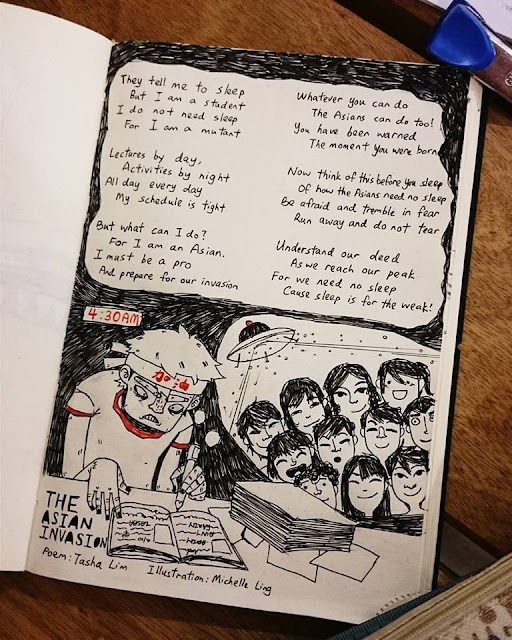 They tell me to sleep
But I am a student
I do not need sleep
For I am a mutant
Lectures by day,
Activities by night
All day every day
My schedule is tight
But what can I do?
For I am an Asian.
I must be a pro
And prepare for our invasion
Whatever you can do
The Asians can do too!
You have been warned
The moment you were born
Now think of this before you sleep
Of how the Asians need no sleep
Be afraid and tremble in fear
Run away and do not tear
Understand our deed
As we reach our peak
For we need no sleep
Cause sleep is for the weak!
4:30AM
加油
THE
ASIAN
INVASION
Poem: Tasha Lim
Illustration: Michelle Ling